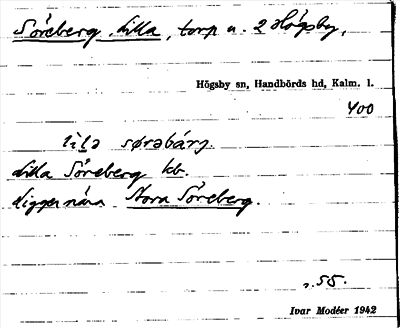 Söreberg, Lilla, torp u. 2 Högsby,
Högsby sn, Handbörds hd, Kalm. l.
400
lìḷa sørəbárj.
Lilla Söreberg kb.
Ligger nära Stora Söreberg.
s. 55.
Ivar Modéer 1942